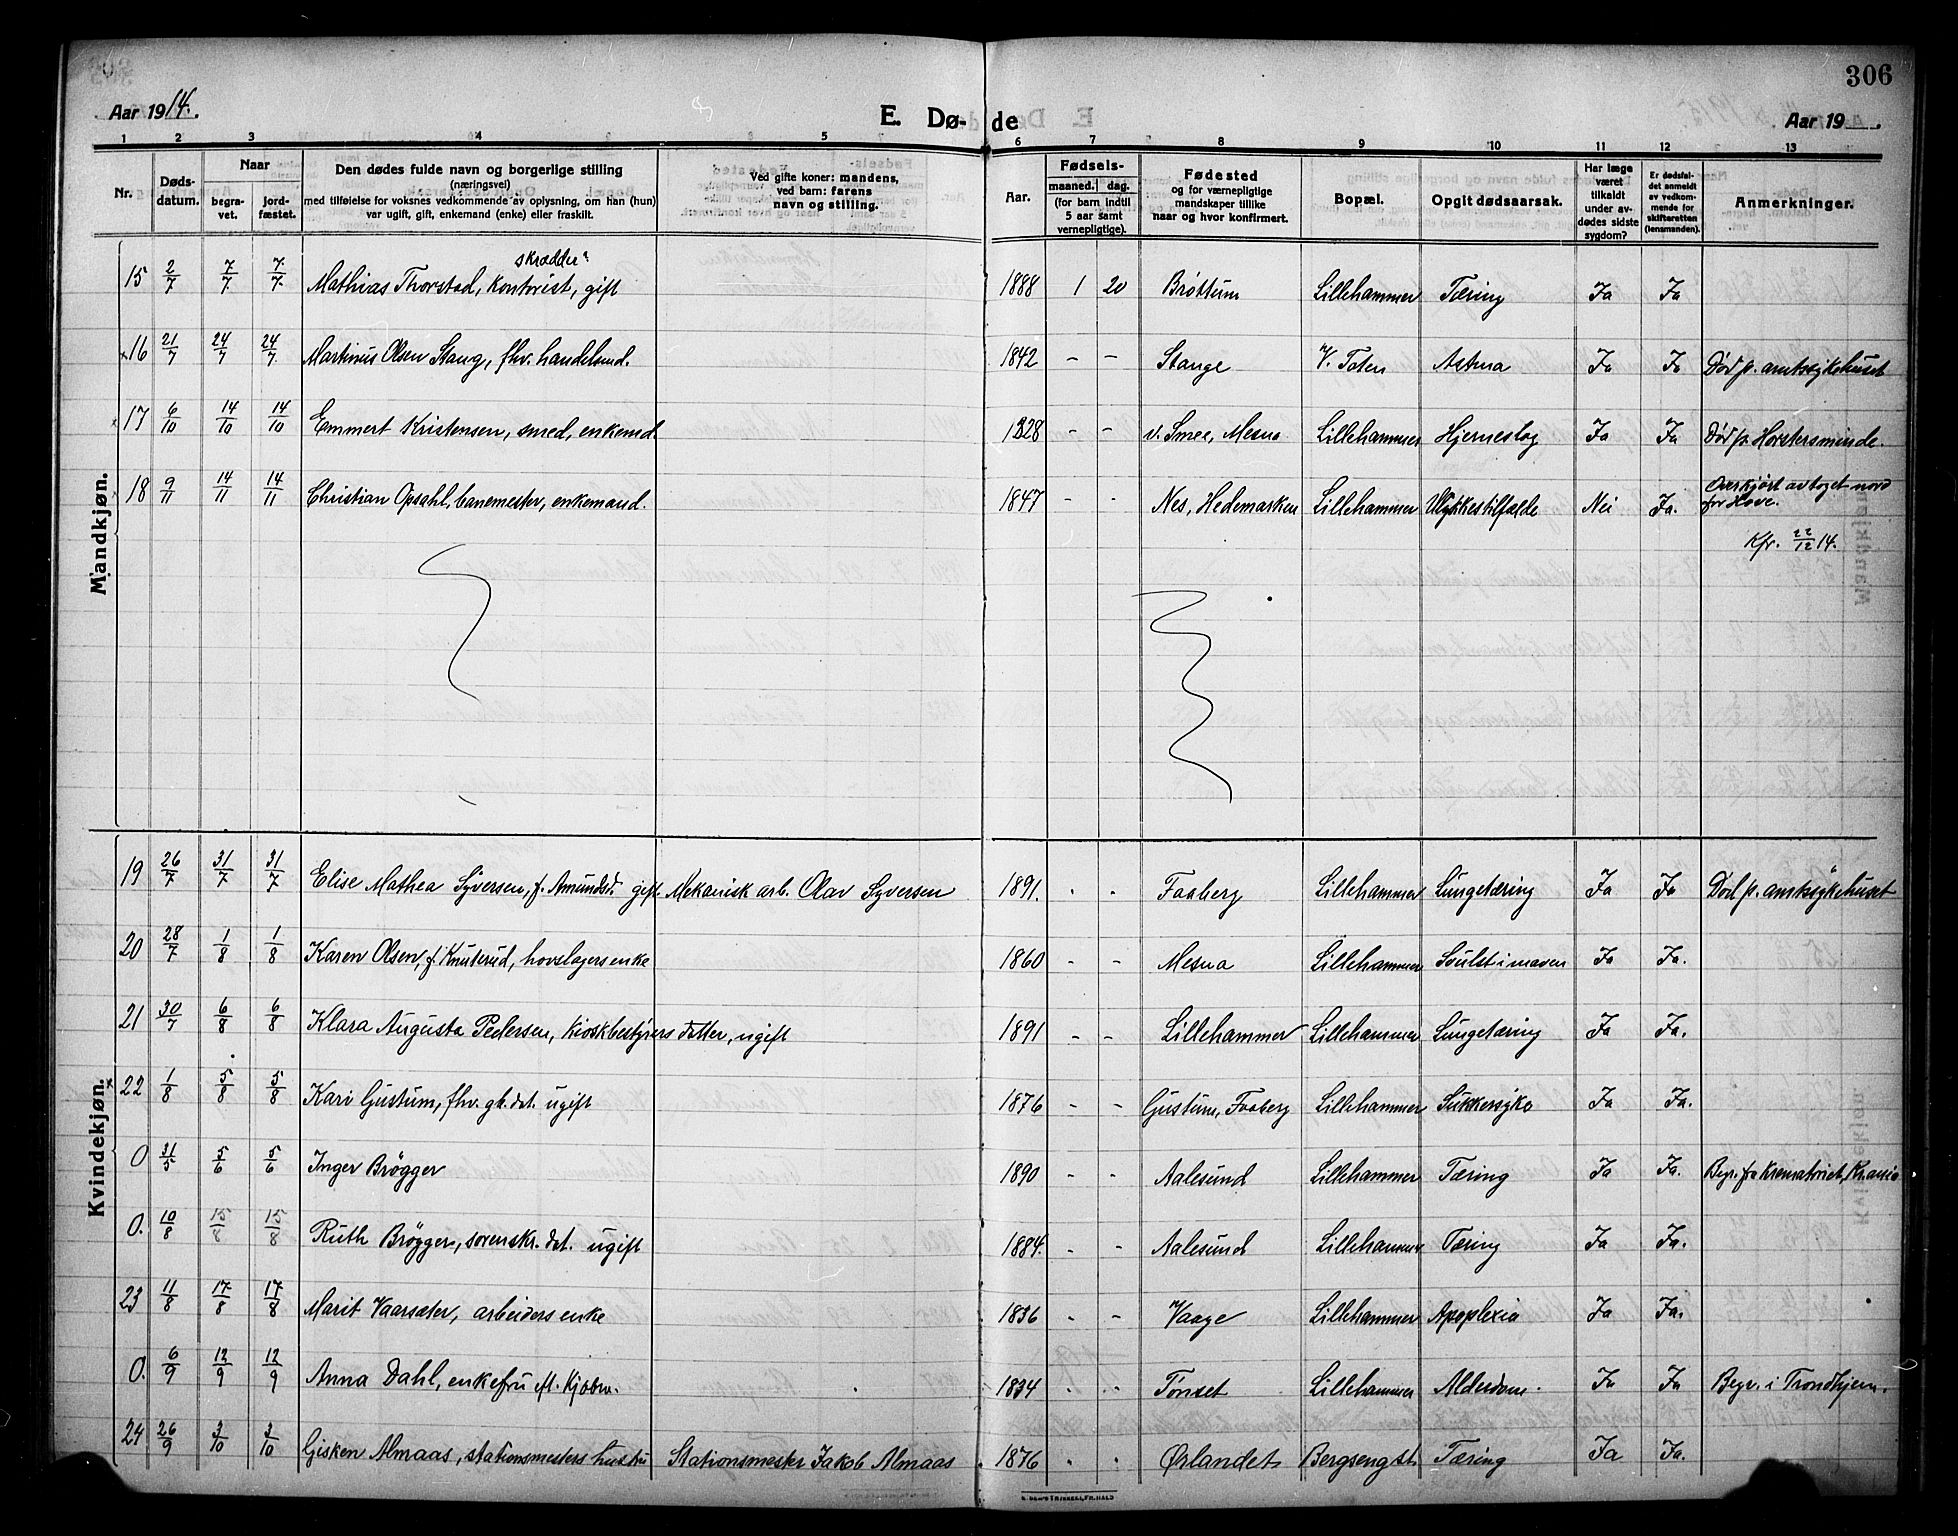 306
Aar 1914.
E. Dø- de
Aar 19
1 2 3 4 5 6 7 8 9 10 11 12 13
Nr.
Døds-
datum.
Naar
begra-
vet.
jord-
fæstet.
Den dødes fulde navn og borgerlige stilling
(næringsvei)
med tilføielse for voksnes vedkommende av oplysning, om han (hun)
var ugift, gift, enkemand (enke) eller fraskilt.
Ved gifte koner: mandens,
ved barn: farens
navn og stilling.
Aar.
Fødsels-
maaned. dag.
(for barn indtil
5 aar samt
vernepligtige).
Fødested
og for værnepligtige
mandskaper tillike
naar og hvor konfirmert.
Bopæl.
Opgit dødsaarsak.
Har læge
været
tilkaldt
under av-
dødes sidste
sygdom?
Er dødsfal-
det anmeldt
av vedkom-
mende for
skifteretten
(lensmanden).
Anmerkninger.
Mandkjøn.
skrædder
15 2/7 7/7 7/7 Mathias Thorstad, kontorist, gift 1888 1 20 Brøttum Lillehammer Tæring Ja Ja
×16 21/7 24/7 24/7 Martinus Olsen Stang, fhv. handelsmd. 1842 - - Stange V. Toten Astma Ja Ja Død p. amtssykehuset
×17 6/10 14/10 14/10 Emmert Kristensen, smed, enkemd. 1828 - - v. Smee, Mesna Lillehammer Hjerneslag Ja Ja Død p. Horstersminde.
18 9/11 14/11 14/11 Christian Opsahl, banemester, enkemand. 1847 - - Nes, Hedemarken Lillehammer Ulykkestilfælde Nei Ja. Overkjørt av toget nord
for Hove.
Kfr. 22/12 14.
Kvindekjøn.
19 26/7 31/7 31/7 Elise Mathea Syversen, f. Amundsd. gift Mekanisk arb. Olav Syversen 1891. - - Faaberg Lillehammer Lungetæring Ja Ja Død p. amtssykehuset
20 28/7 1/8 1/8 Karen Olsen, f. Knutsrud, hovslagers enke 1860 - - Mesna Lillehammer Svulst i maven Ja Ja.
21 30/7 6/8 6/8 Klara Augusta Pedersen, kioskbestyrers datter, ugift 1891 - - Lillehammer Lillehammer Lungetæring Ja Ja.
×22 1/8 5/8 5/8 Kari Gustum, fhv. gb. dat. ugift 1876 - - Gustum, Faaberg Lillehammer Sukkersyke Ja Ja.
0 31/5 5/6 5/6 Inger Brøgger 1890 - - Aalesund Lillehammer Tæring Ja Ja. Begr. fra Krematoriet, Kr.ania
0. 10/8 15/8 15/8 Ruth Brøgger, sorenskr. dat. ugift 1884. - - Aalesund Lillehammer Tæring Ja Ja.
23 11/8 17/8 17/8 Marit Vaarsæter, arbeiders enke 1836 - - Vaage Lillehammer Apoplexia Ja Ja.
0. 6/9 12/9 12/9 Anna Dahl, enkefru eft. Kjøbm. 1834 - - Tønset Lillehammer Alderdom. Ja Ja Begr. i Trondhjem.
24 26/9 3/10 3/10 Gisken Almaas, stationsmesters hustru Stationsmester Jakob Almaas 1876 - - Ørlandet Bergsengst. Tæring Ja Ja.